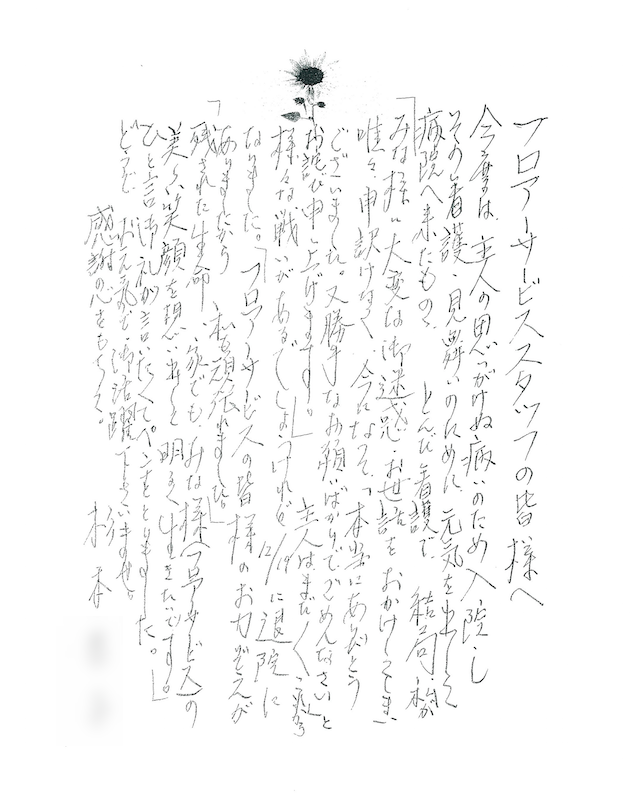 フロアーサービススタッフの皆様へ
今度は、主人の思いがけぬ病いのため入院し
その看護・見舞いのために、元気を出して
病院へ来たものゝ、とんだ看護で、結局私が
「みな様に大変な御迷惑・お世話をおかけしてしまい
唯々、申訳けなく、今になって、「本当にありがとう
ございました。又勝手なお願いばかりでごめんなさいと
お詫び申し上げます。」主人はまだまだこれから
様々な戦いがあるでしょうけれど 12/19に退院に
なりました。「フロアーサービスの皆様のお力ぞえが
「ありましたから 私も頑張れました。」
残された生命、家でも、みな様(フロアーサービス)の
美しい笑顔を思い出しと明るく生きたいです。
ひと言御礼が言いたくてペンをとりました。」
どうぞ、お元気で御活躍下さいませ。
感謝の心をもちて。
杉本